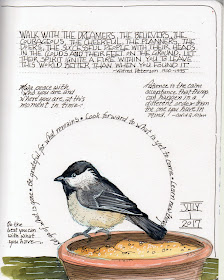 WALK WITH THE DREAMERS, THE BELIEVERS, THE
COURAGEOUS, THE CHEERFUL, THE PLANNERS, THE
DOERS, THE SUCCESSFUL PEOPLE WITH THEIR HEADS
IN THE CLOUDS AND THEIR FEET ON THE GROUND. LET
THEIR SPIRIT IGNITE A FIRE WITHIN YOU TO LEAVE
THIS WORLD BETTER THAN WHEN YOU FOUND IT.
Make peace with
who you are and
where you are, at this
moment in time
Patience is the calm
acceptance that things
can happen in a
different order than
the one you have in
mind!
Let go of what's gone • be grateful for what remains • Look forward to what is yet to come
Do the
best you can
with what
you have
JULY
2017